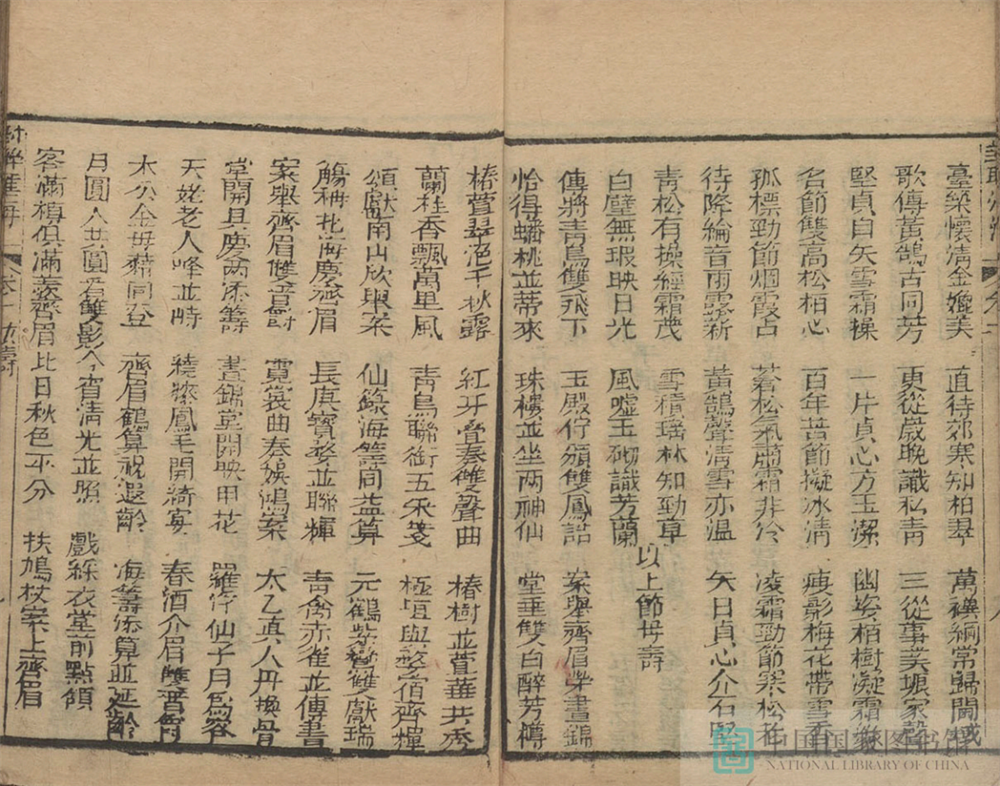 臺築懷清金媲美 直待郊寒知柏翠 萬禩綱常歸閫域
歌傳黃鵠古同芳 更從歲晚識松青 三從事美堠家聲
堅貞自矢雪霜操 一片貞心方玉潔 幽姿栢樹凝霜
名節雙高松柏心 百年苦節擬冰清 瘐影梅花帶雪香
孤標勁節烟霞占 蒼松氣肅霜非冷 凌霜勁節寒松在
待降綸音雨露新 黃鵠聲清雪亦溫 矢日貞心介石堅
青松有操經霜茂 雪積瑶林知勁草
白璧無瑕映日光 風噓玉砌識芳蘭 以上節母壽
傳將青鳥雙飛下 玉殿佇頒雙鳳詔 案舉齊眉榮晝錦
恰得蟠桃並蒂來 珠樓並坐两神仙 堂垂雙白醉芳樽
椿萱翠浥千秋露 紅牙疊奏雙聲曲 椿樹並萱華共秀
蘭桂香飄萬里風 青鳥聯銜五采箋 極垣與婺宿齊輝
頌獻南山欣舉案 仙籙海籌同益算 元鶴紫鸞雙獻瑞
觴稱北海慶齊眉 長庚寶婺並聯輝 青禽赤雀並傳書
案舉齊眉雙喜酎 霓裳曲奏娛鴻案 太乙真人丹換骨
堂開具慶两添籌 晝錦堂開映甲花 羅仔仙子月為容
天姥老人峰並峙 繞膝鳳毛開綺宴 春酒介眉雙晉
木公金母籍同登 齊眉鶴算祝遐齡 海籌添算並延齡
月圓人共圓看雙影今宵清光並照 戲綵衣堂前點頷
客滿樽俱滿羨齊眉比日秋色平分 扶鳩杖案上齊眉